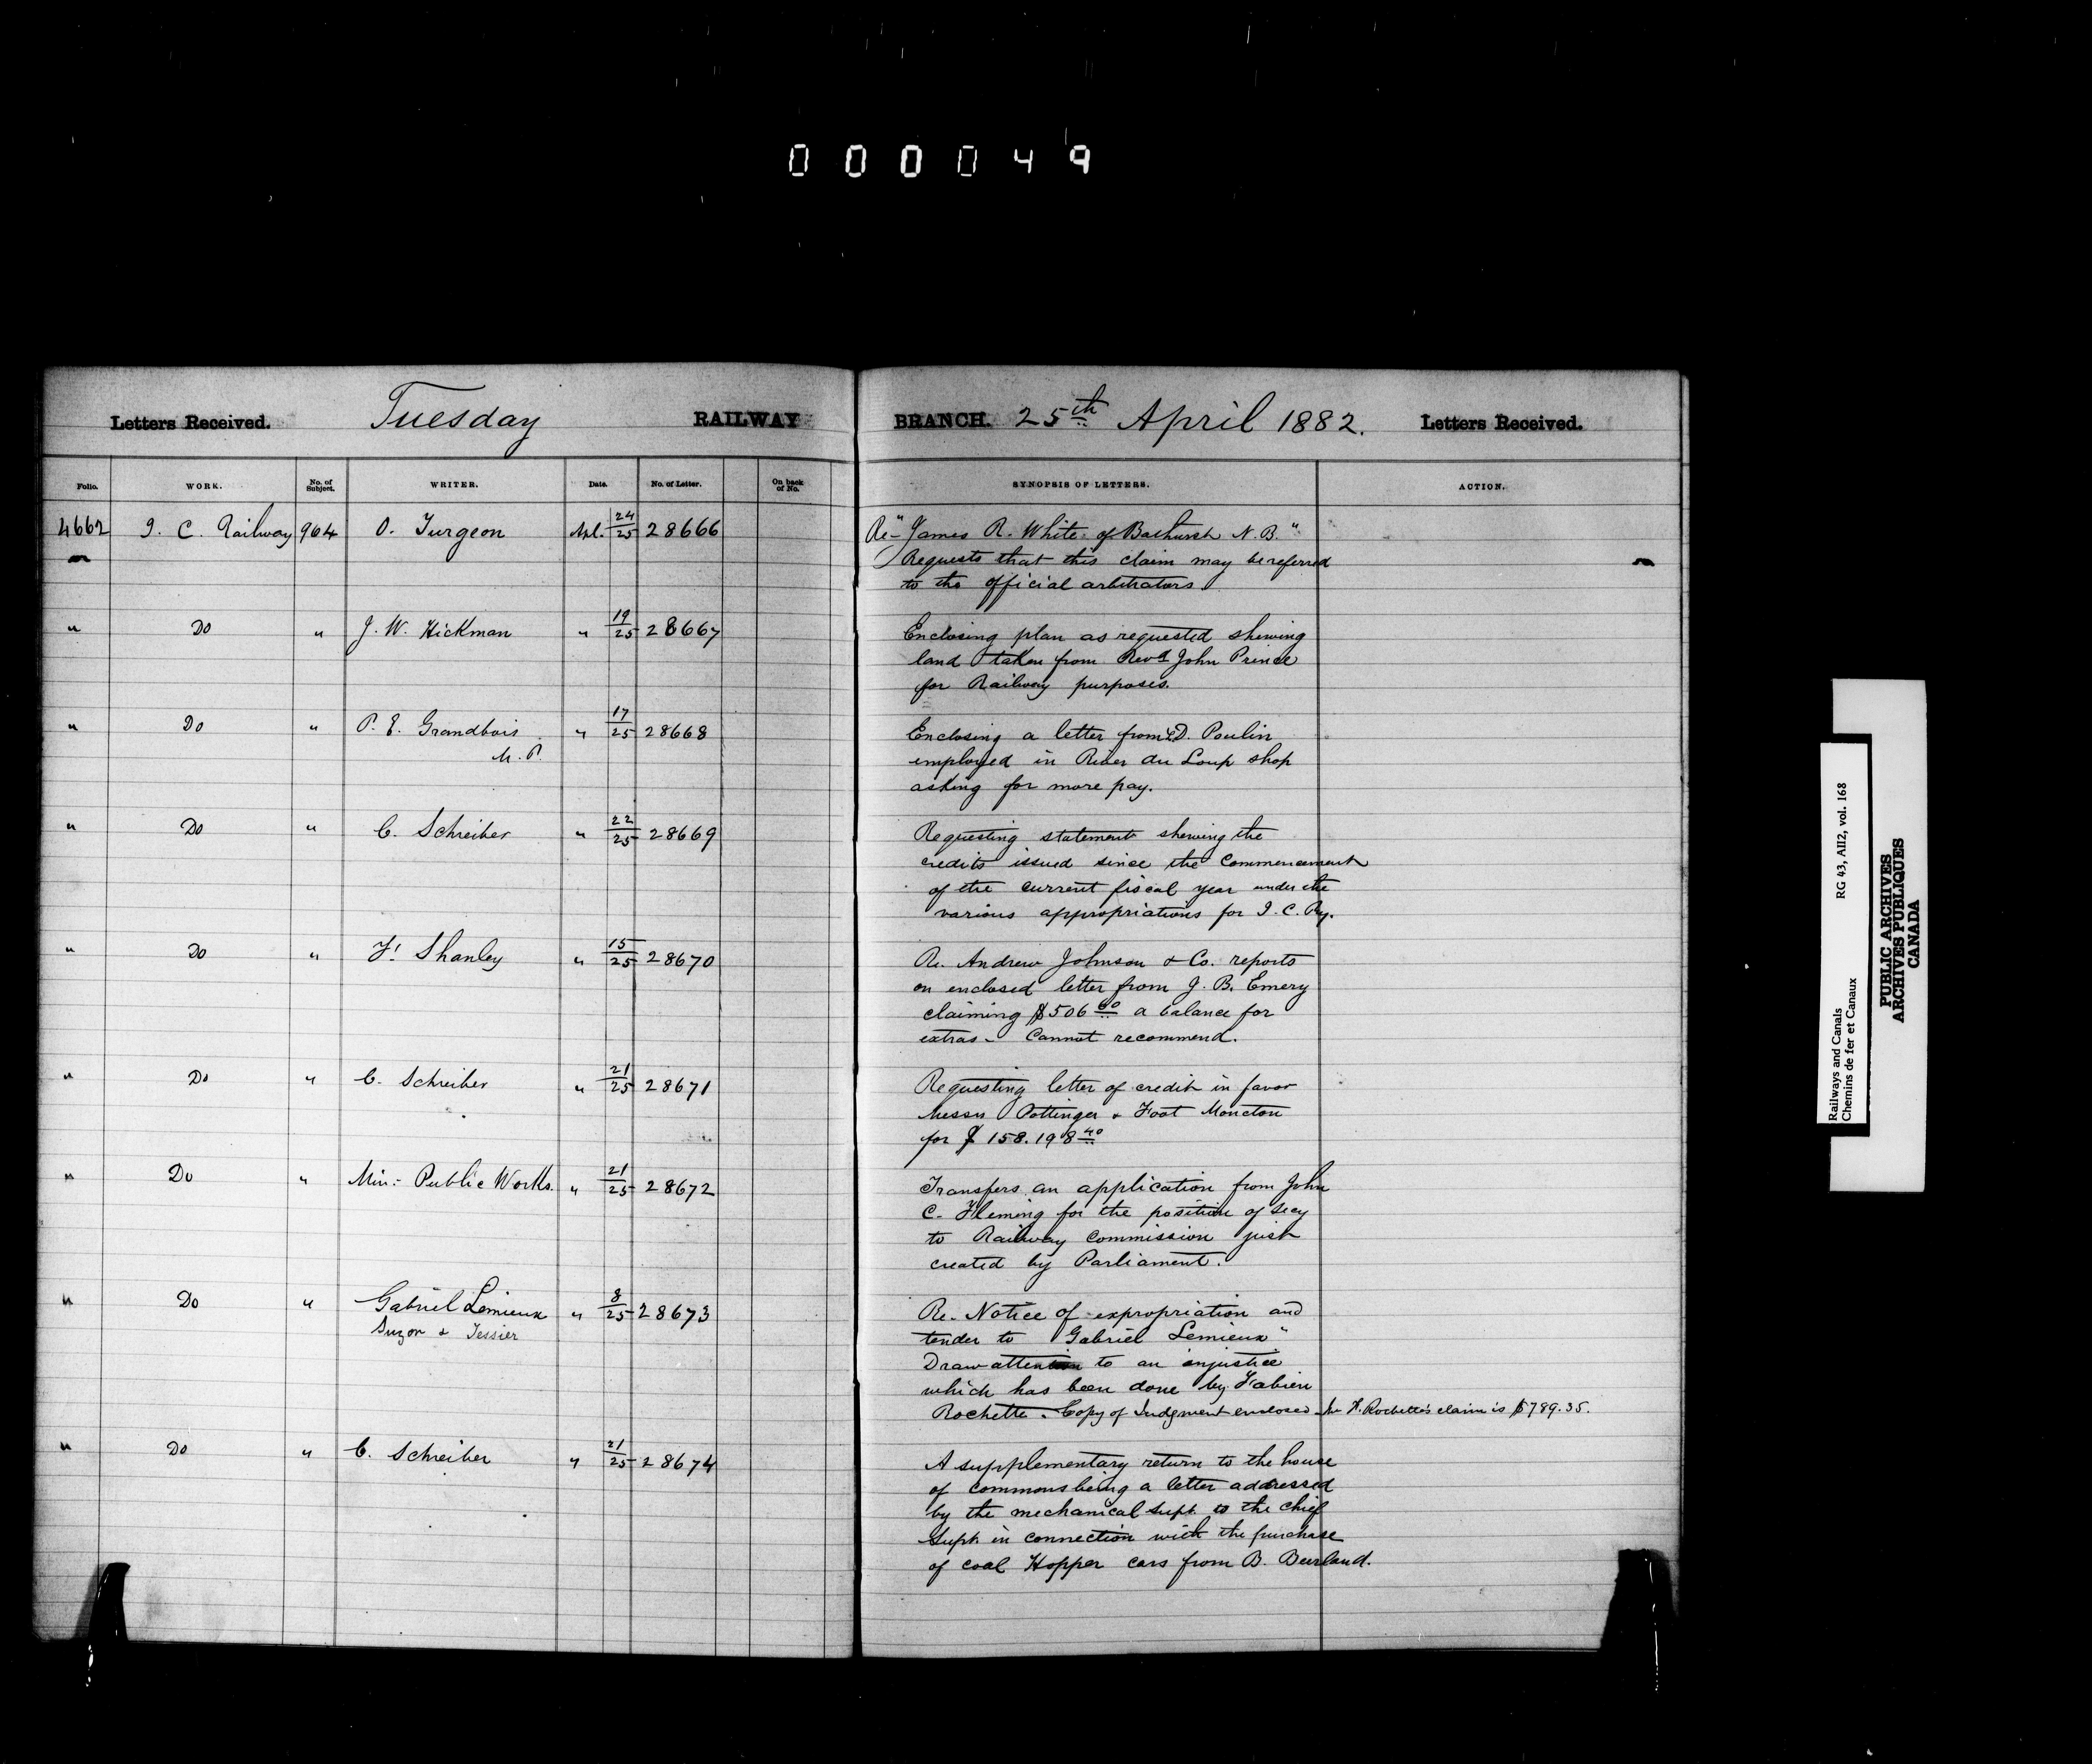 000049
Letters Received. Tuesday RAILWAY BRANCH. 25th April 1882. Letters Received.
Folio. WORK. No. of Subject. WRITER. Date. No. of Letter. On back of No. SYNOPSIS OF LETTERS. ACTION.
4662 I. C. Railway 964 O. Turgeon Apl. 24/25 28666 Re "James R. White of Bathurst N.B."
Requests that this claim may be referred
to the official arbitrators.
" Do " J. W. Hickman " 19/25 28667 Enclosing plan as requested shewing
land taken from Revd John Prince
for Railway purposes.
" Do " P. E. Grandbois " 17/25 28668 Enclosing a letter from D. Poulin
M.P. employed in River du Loup shop
asking for more pay.
" Do " C. Schreiber " 22/25 28669 Requesting statement shewing the
credits issued since the commencement
of the current fiscal year under the
various appropriations for I. C. Ry.
" Do " F. Shanley " 15/25 28670 Re. Andrew Johnson & Co. reports
on enclosed letter from J. B. Emery
claiming $506 60 a balance for
extras - Cannot recommend.
" Do " C. Schreiber " 21/25 28671 Requesting letter of credit in favor
Messrs Pottinger & Foot Moncton
for $ 158.198 40
" Do " Min:- Public Works. " 21/25 28672 Transfers an application from John
C. Fleming for the position of Secy
to Railway Commission just
created by Parliament.
" Do " Gabriel Lemieux " 8/25 28673 Re. Notice of expropriation and
Suzor & Tessier tender to "Gabriel Lemieux"
Draw attention to an injustice
which has been done by Fabien
Rochette. Copy of Judgment enclosed - Mr F. Rochette's claim is $789.35.
" Do " C. Schreiber " 21/25 28674 A supplementary return to the house
of commons being a letter addressed
by the mechanical Supt. to the chief
Supt in connection with the purchase
of coal Hopper cars from B. Burland.
Railways and Canals RG 43, AII2, vol. 168
Chemins de fer et Canaux
PUBLIC ARCHIVES
ARCHIVES PUBLIQUES
CANADA